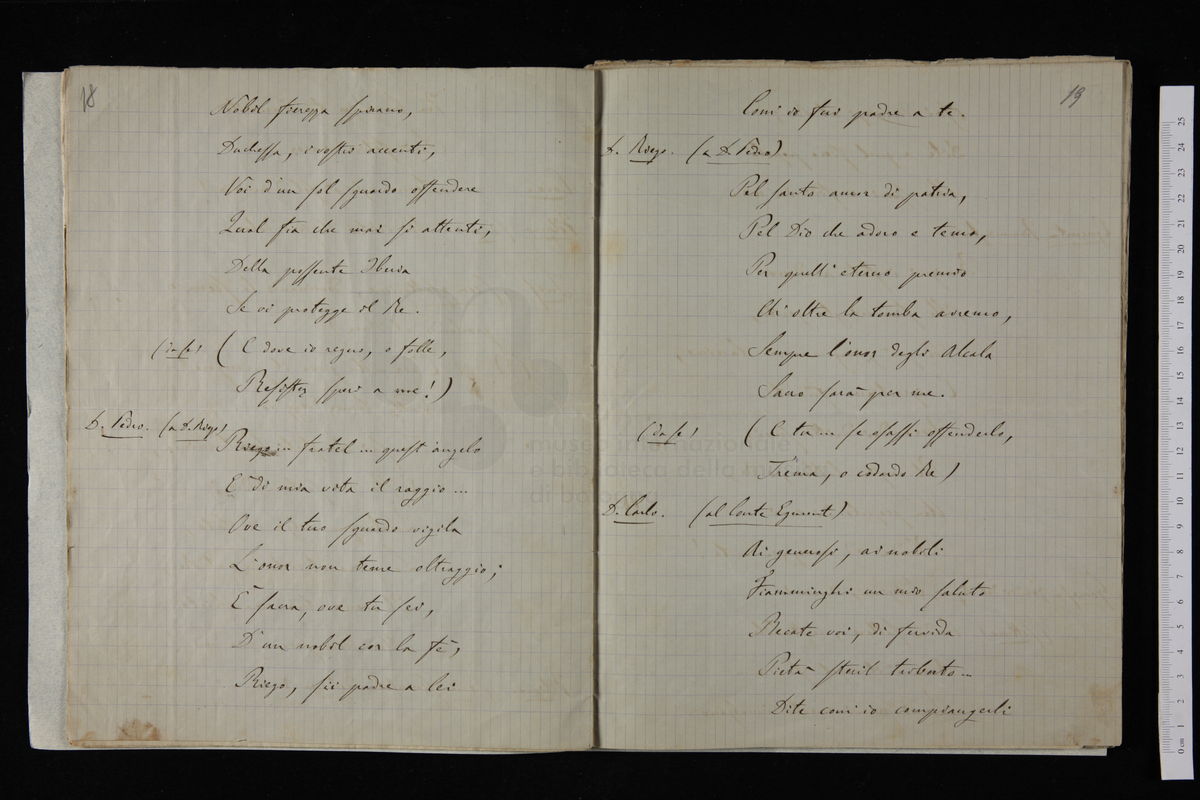 18
Nobil fierezza spirano,
Duchessa, i vostri accenti,
Voi d'un sol sguardo offendere
Qual fia che mai si attenti,
Della possente Iberia
Se vi protegge il Re.
(da se) (E dove io regno, o folle,
Resister speri a me!)
D. Pedro. (a D. Riego)
Riego in fratel in quest'angelo
E' di mia vita il raggio...
Ove il tuo sguardo vigila
L'onor non teme oltraggio;
E' sacra, ove tu sei,
D'un nobil cor la fe',
Riego, sii padre a lei
19
Com'io fui padre a te.
D. Riego. (a D. Pedro)
Pel santo amor di patria,
Pel Dio che adoro e temo,
Per quell'eterno premio
Ch'oltre la tomba avremo,
Sempre l'onor degli Alcala
Sacro sarà per me.
(da se) (E tu se osassi offenderlo,
Trema, o codardo Re)
D. Carlo. (al Conte Egmont)
Ai generosi, ai nobili
Fiamminghi un mio saluto
Recate voi, di fervida
Pietà steril tributo...
Dite com'io compiangerli
museo
e biblioteca della musica
di bologna
0 cm 1 2 3 4 5 6 7 8 9 10 11 12 13 14 15 16 17 18 19 20 21 22 23 24 25